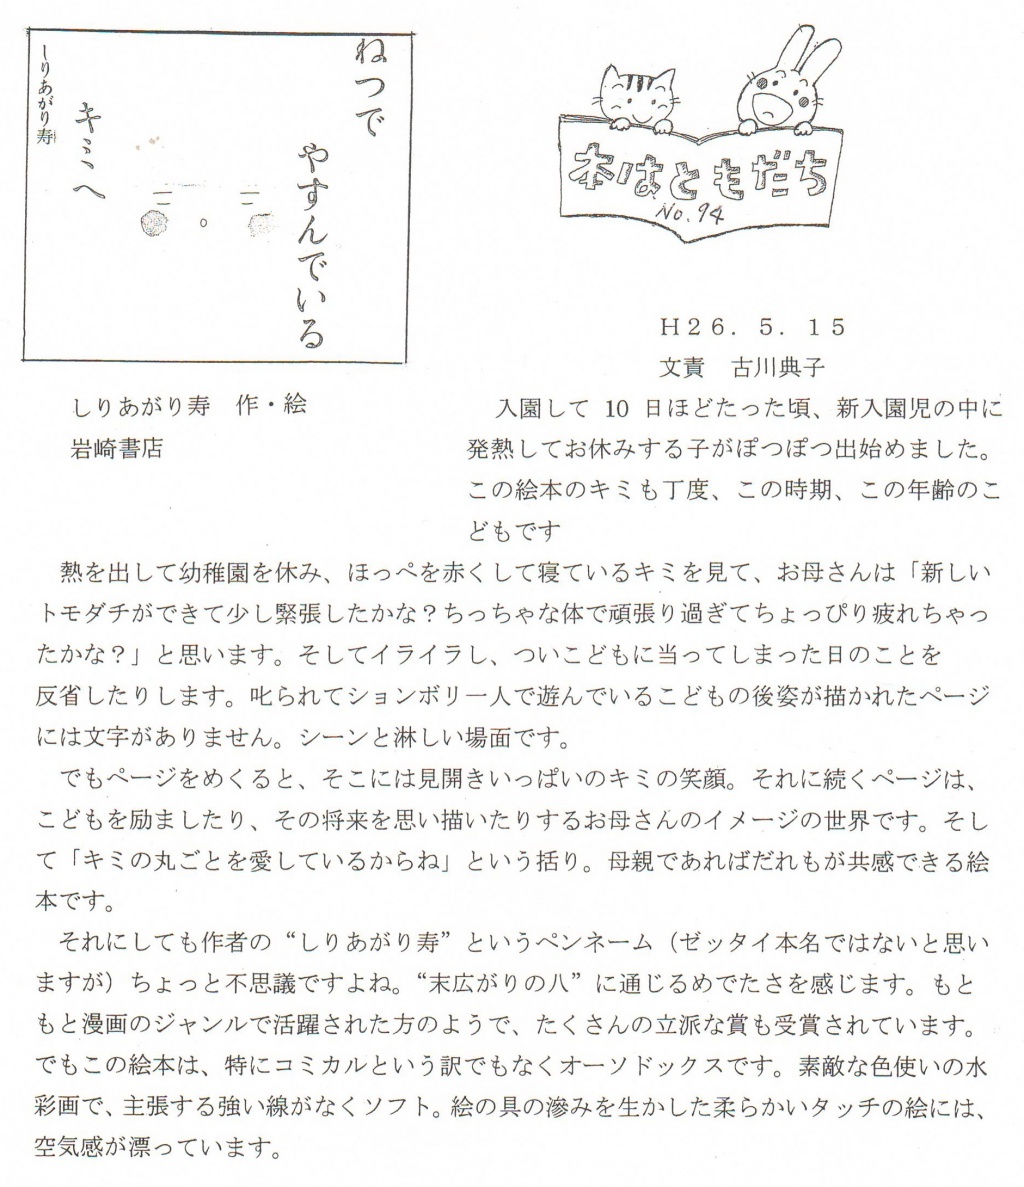 ねつで
やすんでいる
キミへ
しりあがり寿
本はともだち
No.94
H26.5.15
文責　古川典子
しりあがり寿　作・絵
岩崎書店
入園して 10 日ほどたった頃、新入園児の中に
発熱してお休みする子がぽつぽつ出始めました。
この絵本のキミも丁度、この時期、この年齢のこ
どもです
熱を出して幼稚園を休み、ほっぺを赤くして寝ているキミを見て、お母さんは「新しい
トモダチができて少し緊張したかな？ちっちゃな体で頑張り過ぎてちょっぴり疲れちゃっ
たかな？」と思います。そしてイライラし、ついこどもに当ってしまった日のことを
反省したりします。叱られてションボリ一人で遊んでいるこどもの後姿が描かれたページ
には文字がありません。シーンと淋しい場面です。
でもページをめくると、そこには見開きいっぱいのキミの笑顔。それに続くページは、
こどもを励ましたり、その将来を思い描いたりするお母さんのイメージの世界です。そし
て「キミの丸ごとを愛しているからね」という括り。母親であればだれもが共感できる絵
本です。
それにしても作者の“しりあがり寿”というペンネーム（ゼッタイ本名ではないと思い
ますが）ちょっと不思議ですよね。“末広がりの八”に通じるめでたさを感じます。もと
もと漫画のジャンルで活躍された方のようで、たくさんの立派な賞も受賞されています。
でもこの絵本は、特にコミカルという訳でもなくオーソドックスです。素敵な色使いの水
彩画で、主張する強い線がなくソフト。絵の具の滲みを生かした柔らかいタッチの絵には、
空気感が漂っています。